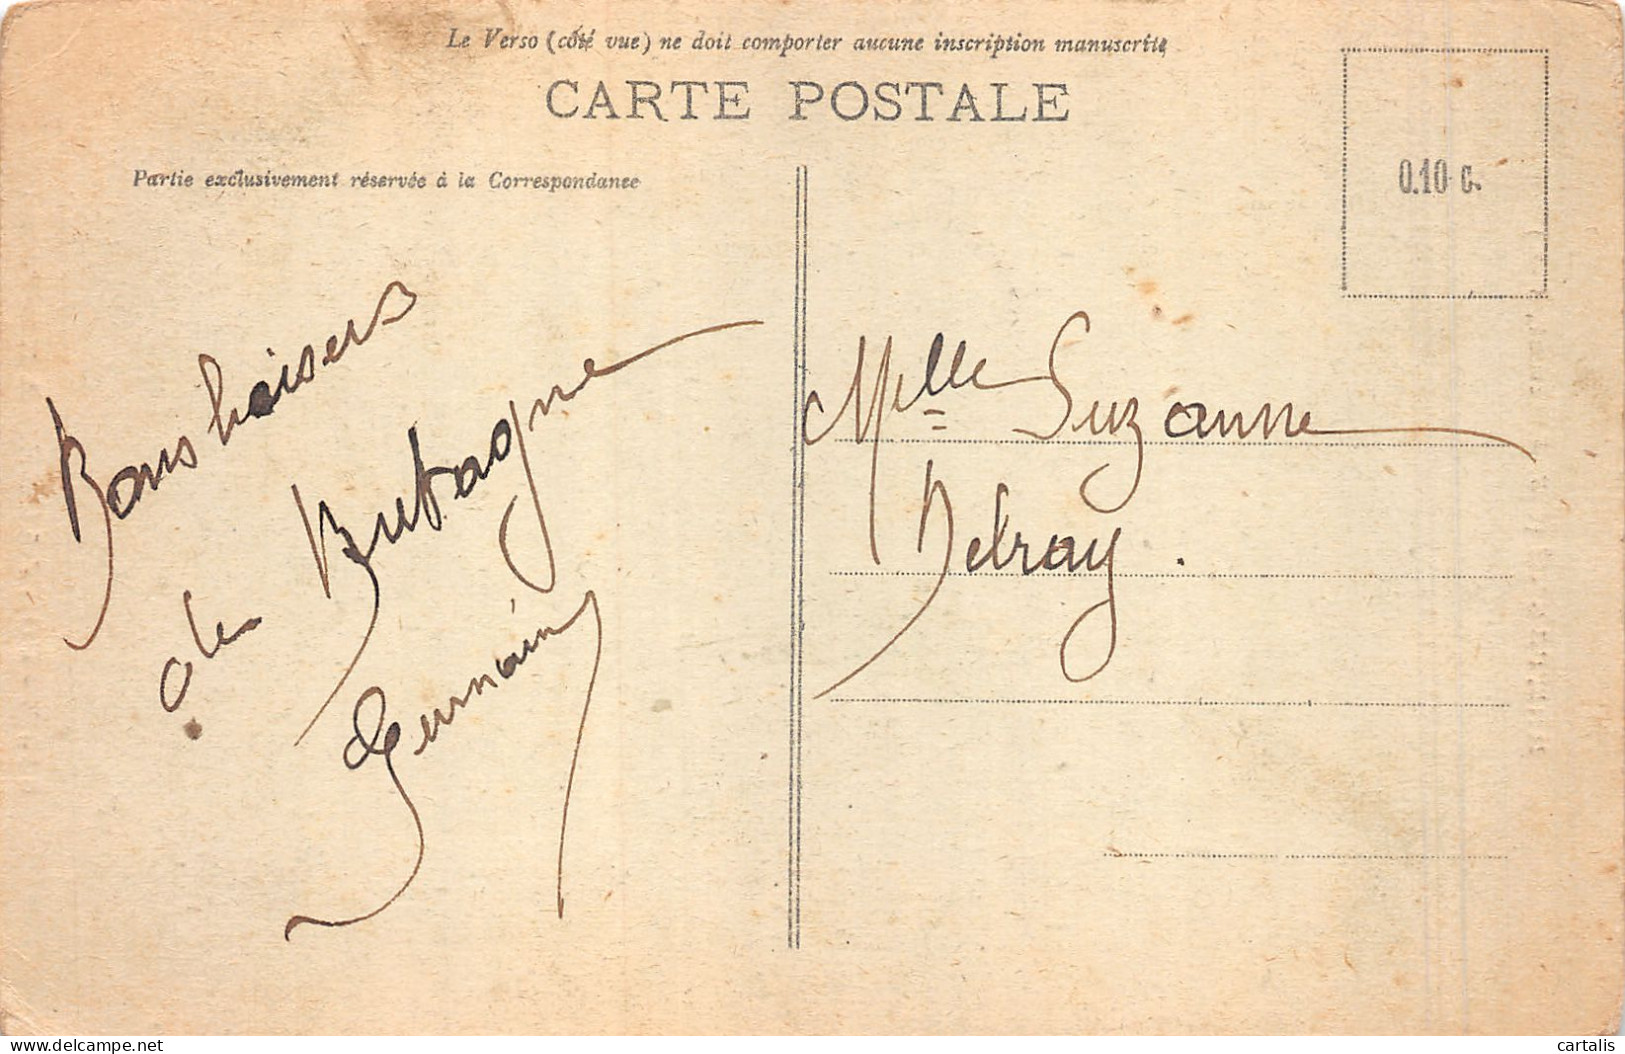 Le Verso (côté vue) ne doit comporter aucune inscription manuscrite
CARTE POSTALE
Partie exclusivement réservée à la Correspondance
0.10 c.
Bons baisers
de Bretagne
Germain
Melle Suzanne
Delray.
cartalis
delcampe.net